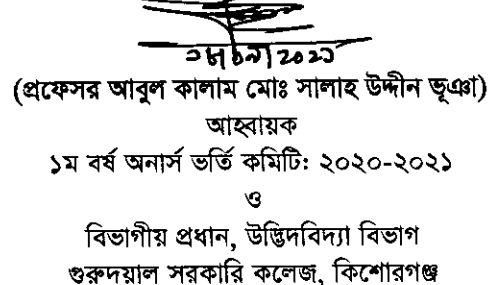 (প্রফেসর আবুল কালাম মোঃ সালাহ উদ্দীন ভূঞা)
আহ্বায়ক
১ম বর্ষ অনার্স ভর্তি কমিটি: ২০২০-২০২১
ও
বিভাগীয় প্রধান, উদ্ভিদবিদ্যা বিভাগ
গুরুদয়াল সরকারি কলেজ, কিশোরগঞ্জ